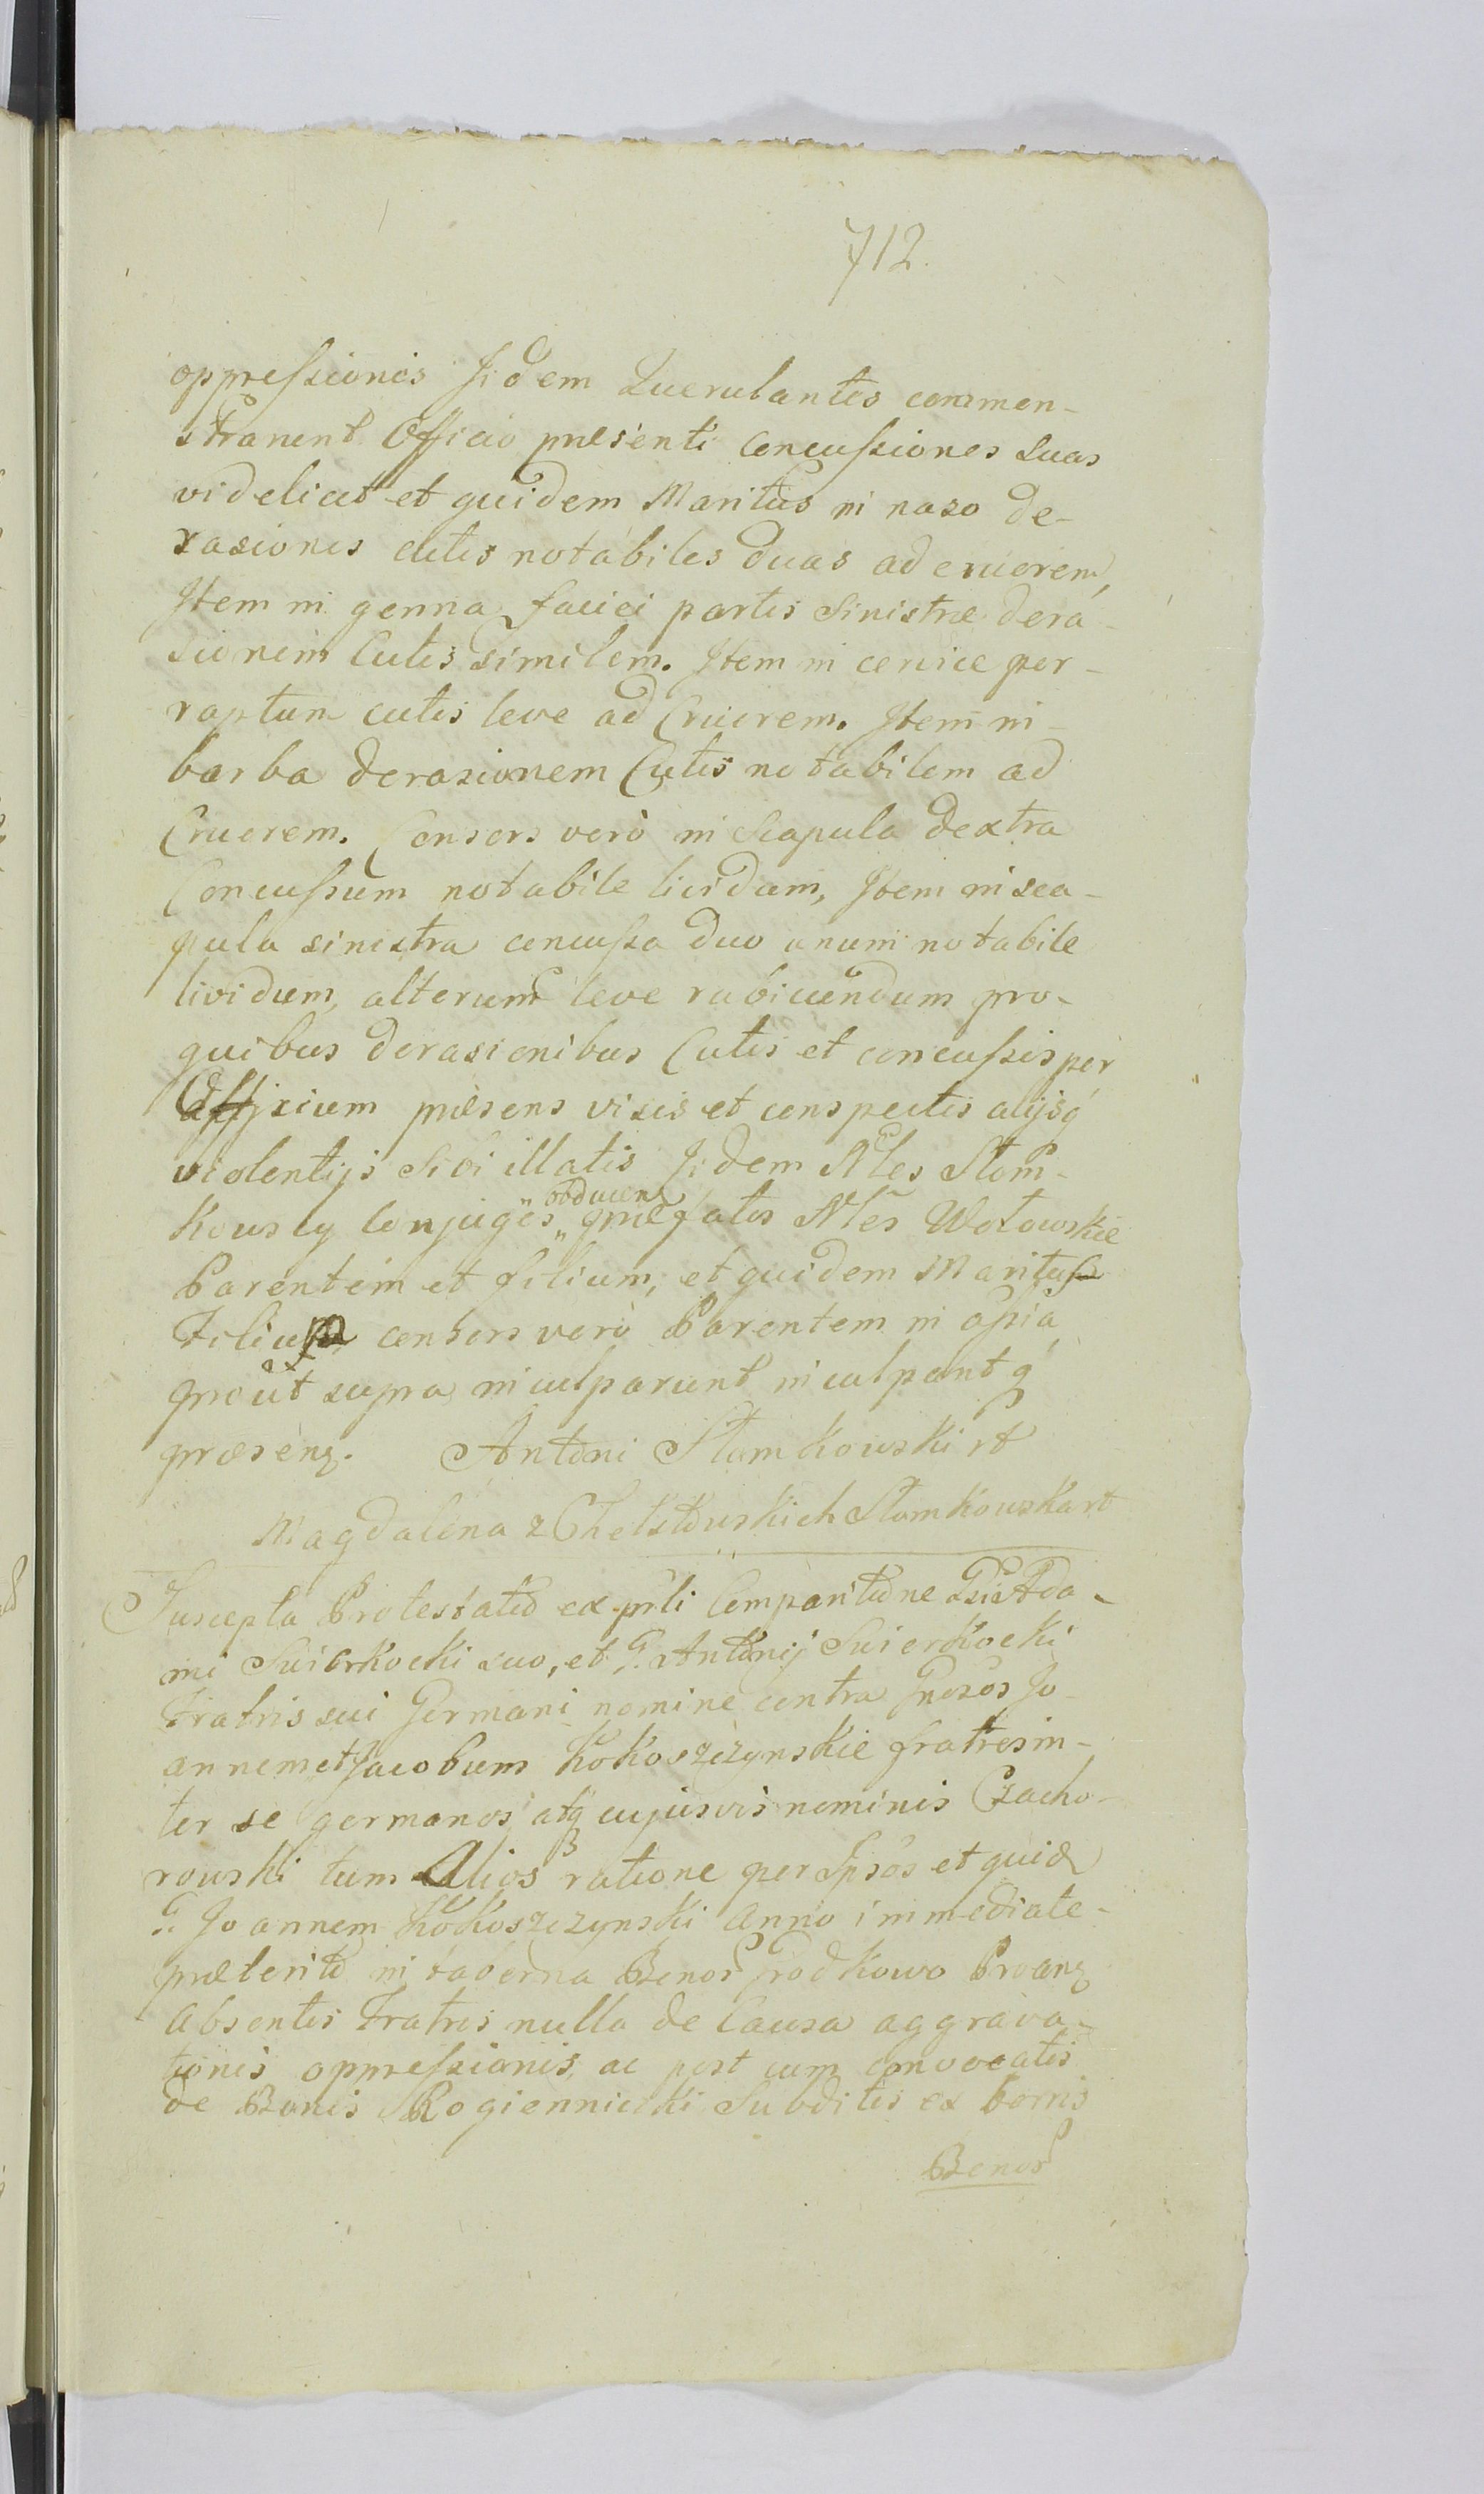 712.
oppressionis Iidem Querulantes commen-
strarunt Officio præsenti Concussiones Suas
videlicet et quidem Maritus in naso de-
rasiones cutis notabiles duas ad cruorem,
Item in genna faciei partis Sinistræ dera-
sionem Cutis similem. Item in cervice per-
raptum cutis leve ad Cruorem. Item in
barba derasionem Cutis notabilem ad
Cruorem. Consors verò in Scapula dextra
Concussum notabile lividum, Item in sca-
pula sinistra concussa duo unum notabile
lividum, alterum leve rubicundum pro-
quibus derasionibus Cutis et concussis per
Officium præsens visis et conspectis alijsq
violentijs Sibi illatis Iidem Nles Słom-
kowscy Conjuges „ obducenz „ præfatos Nles Wołowskie
Parentem et filium, et quidem Maritus
Filium consors verò Parentem in
prout supra inculparunt inculpantq
præsenz. Antoni Słomkowski
Magdalena z Chełstowskich Słomkowska
Suscepta Protestatio ex prli Comparitione Gsi Ada-
mi Swierkocki suo, et G. Antonij Swierkocki
Fratris sui Germani nomine contra Gnosos Jo-
annem et Jacobum Kokoszczynskie fratres in-
ter se germanos, atq cujusvis nominis Czacho-
rowski tum Alios ratione per Ipsos et quid
G. Joannem Kokoszczynski Anno immediate-
præterito in taberna Bonor Grodkowo Proanz
Absentis Fratris nulla de Causa aggrava-
tionis oppressionis, ac post cum convocatis
de Bonis Rogiennicki Subditis ex bonis
Bonor